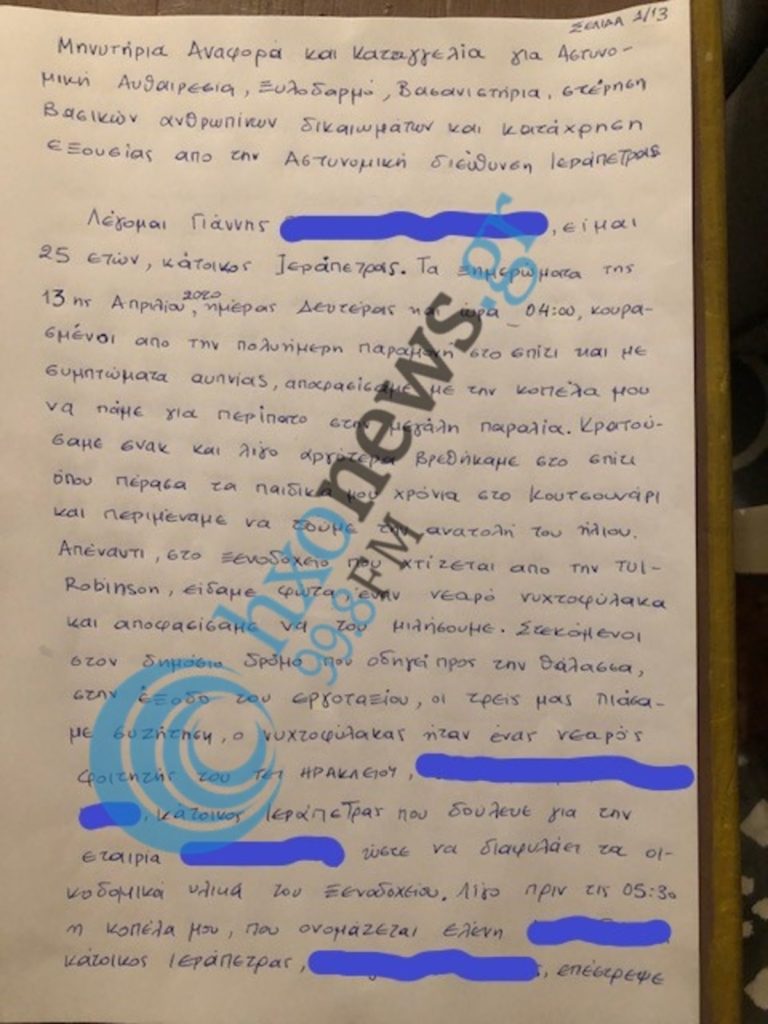 ΣΕΛΙΔΑ 1/13
Μηνυτήρια Αναφορά και καταγγελία για Αστυνο-
μική Αυθαιρεσία, Ξυλοδαρμό, Βασανιστήρια, στέρηση
Βασικών ανθρωπίνων δικαιωμάτων και κατάχρηση
εξουσίας απο την Αστυνομική διεύθυνση Ιεράπετρας
Λέγομαι Γιάννης , είμαι
25 ετών, κάτοικος Ιεράπετρας. Τα ξημερώματα της
13ης Απριλίου 2020, ημέρας Δευτέρας και ώρα 04:00, κουρα-
σμένοι απο την πολυήμερη παραμονή στο σπίτι και με
συμπτώματα αυπνίας, αποφασίσαμε με την κοπέλα μου
να πάμε για περίπατο στην μεγάλη παραλία. Κρατού-
σαμε σνακ και λίγο αργότερα βρεθήκαμε στο σπίτι
όπου πέρασα τα παιδικά μου χρόνια στο Κουτσουνάρι
και περιμέναμε να δούμε την ανατολή του ήλιου.
Απέναντι, στο ξενοδοχείο που χτίζεται απο την TUI-
Robinson, είδαμε φώτα, έναν νεαρό νυχτοφύλακα
και αποφασίσαμε να του μιλήσουμε. Στεκόμενοι
στον δημόσιο δρόμο που οδηγεί προς την θάλασσα,
στην έξοδο του εργοταξίου, οι τρεις μας πιάσα-
με συζήτηση, ο νυχτοφύλακας ήταν ένας νεαρός
φοιτητής του ΤΕΙ ΗΡΑΚΛΕΙΟΥ,
, κάτοικος Ιεράπετρας που δούλευε για την
εταιρία ώστε να διαφυλάει τα οι-
κοδομικά υλικά του ξενοδοχείου. Λίγο πριν τις 05:30
η κοπέλα μου, που ονομάζεται ελένη
κάτοικος Ιεράπετρας, , επέστρεψε
hxonews.gr
99.8FM